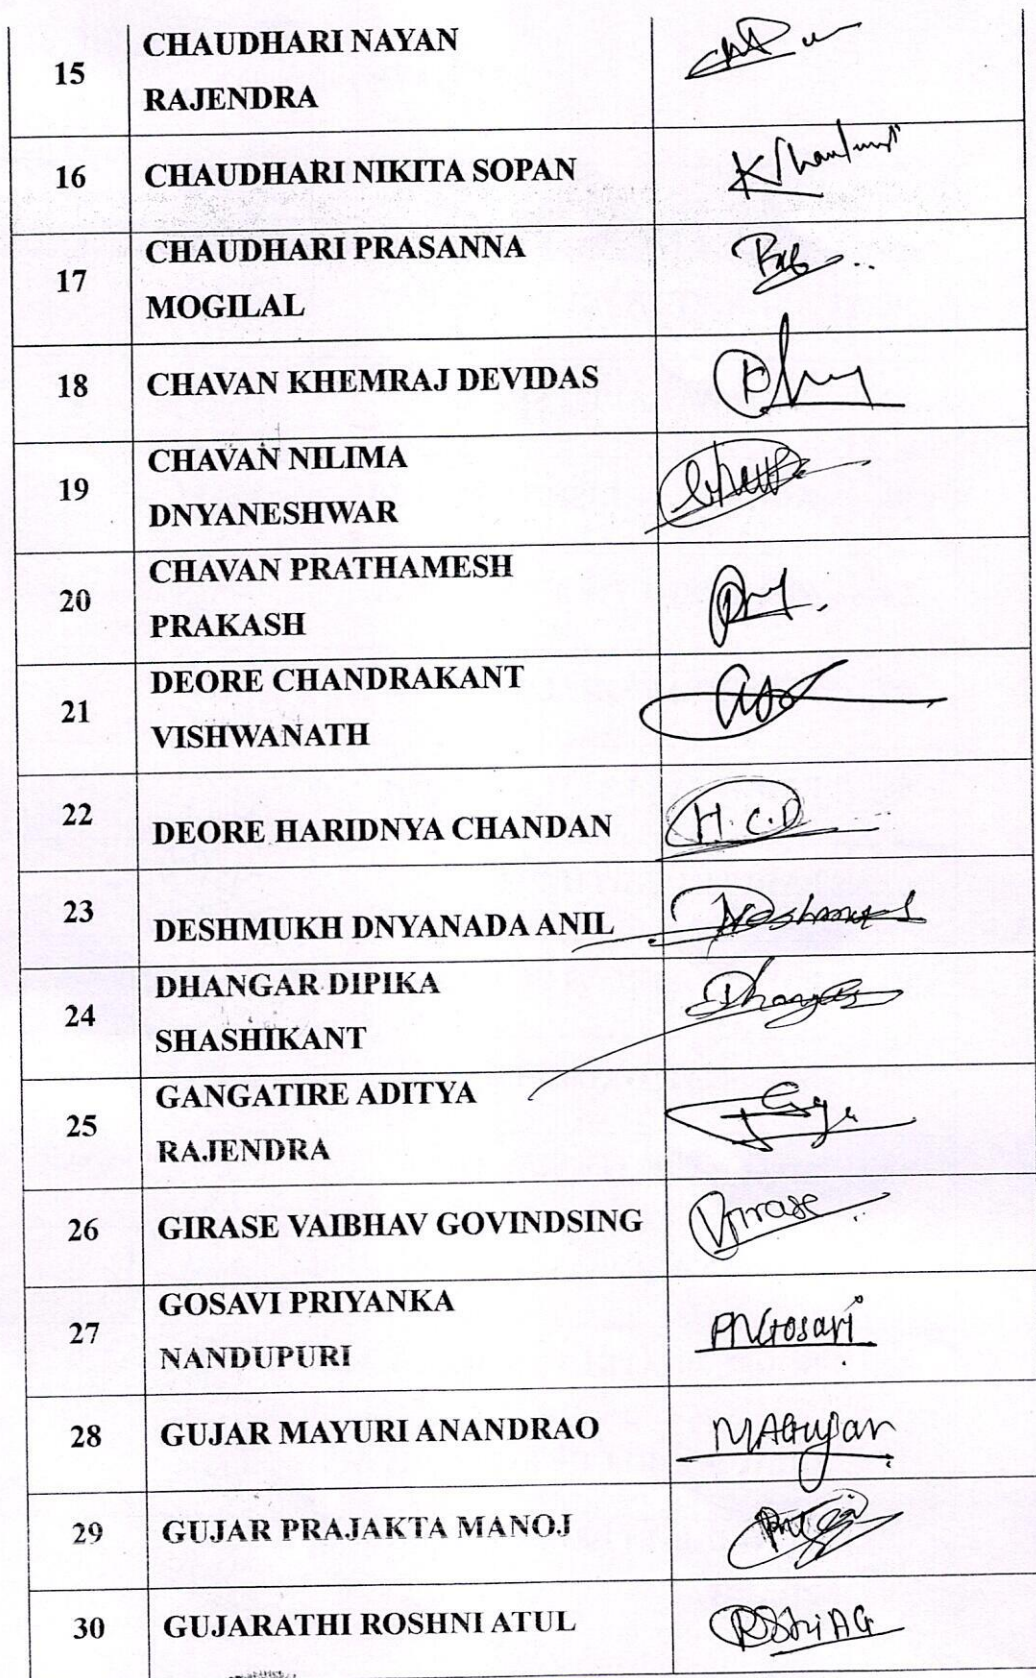 15
CHAUDHARI NAYAN
RAJENDRA
16
CHAUDHARI NIKITA SOPAN
17
CHAUDHARI PRASANNA
MOGILAL
18
CHAVAN KHEMRAJ DEVIDAS
19
CHAVAN NILIMA
DNYANESHWAR
20
CHAVAN PRATHAMESH
PRAKASH
21
DEORE CHANDRAKANT
VISHWANATH
22
DEORE HARIDNYA CHANDAN
H.C.D
23
DESHMUKH DNYANADA ANIL
Deshmukh
24
DHANGAR DIPIKA
SHASHIKANT
Dhangar
25
GANGATIRE ADITYA
RAJENDRA
26
GIRASE VAIBHAV GOVINDSING
VGirase
27
GOSAVI PRIYANKA
NANDUPURI
PNGosavi
28
GUJAR MAYURI ANANDRAO
MAGujar
29
GUJAR PRAJAKTA MANOJ
30
GUJARATHI ROSHNI ATUL